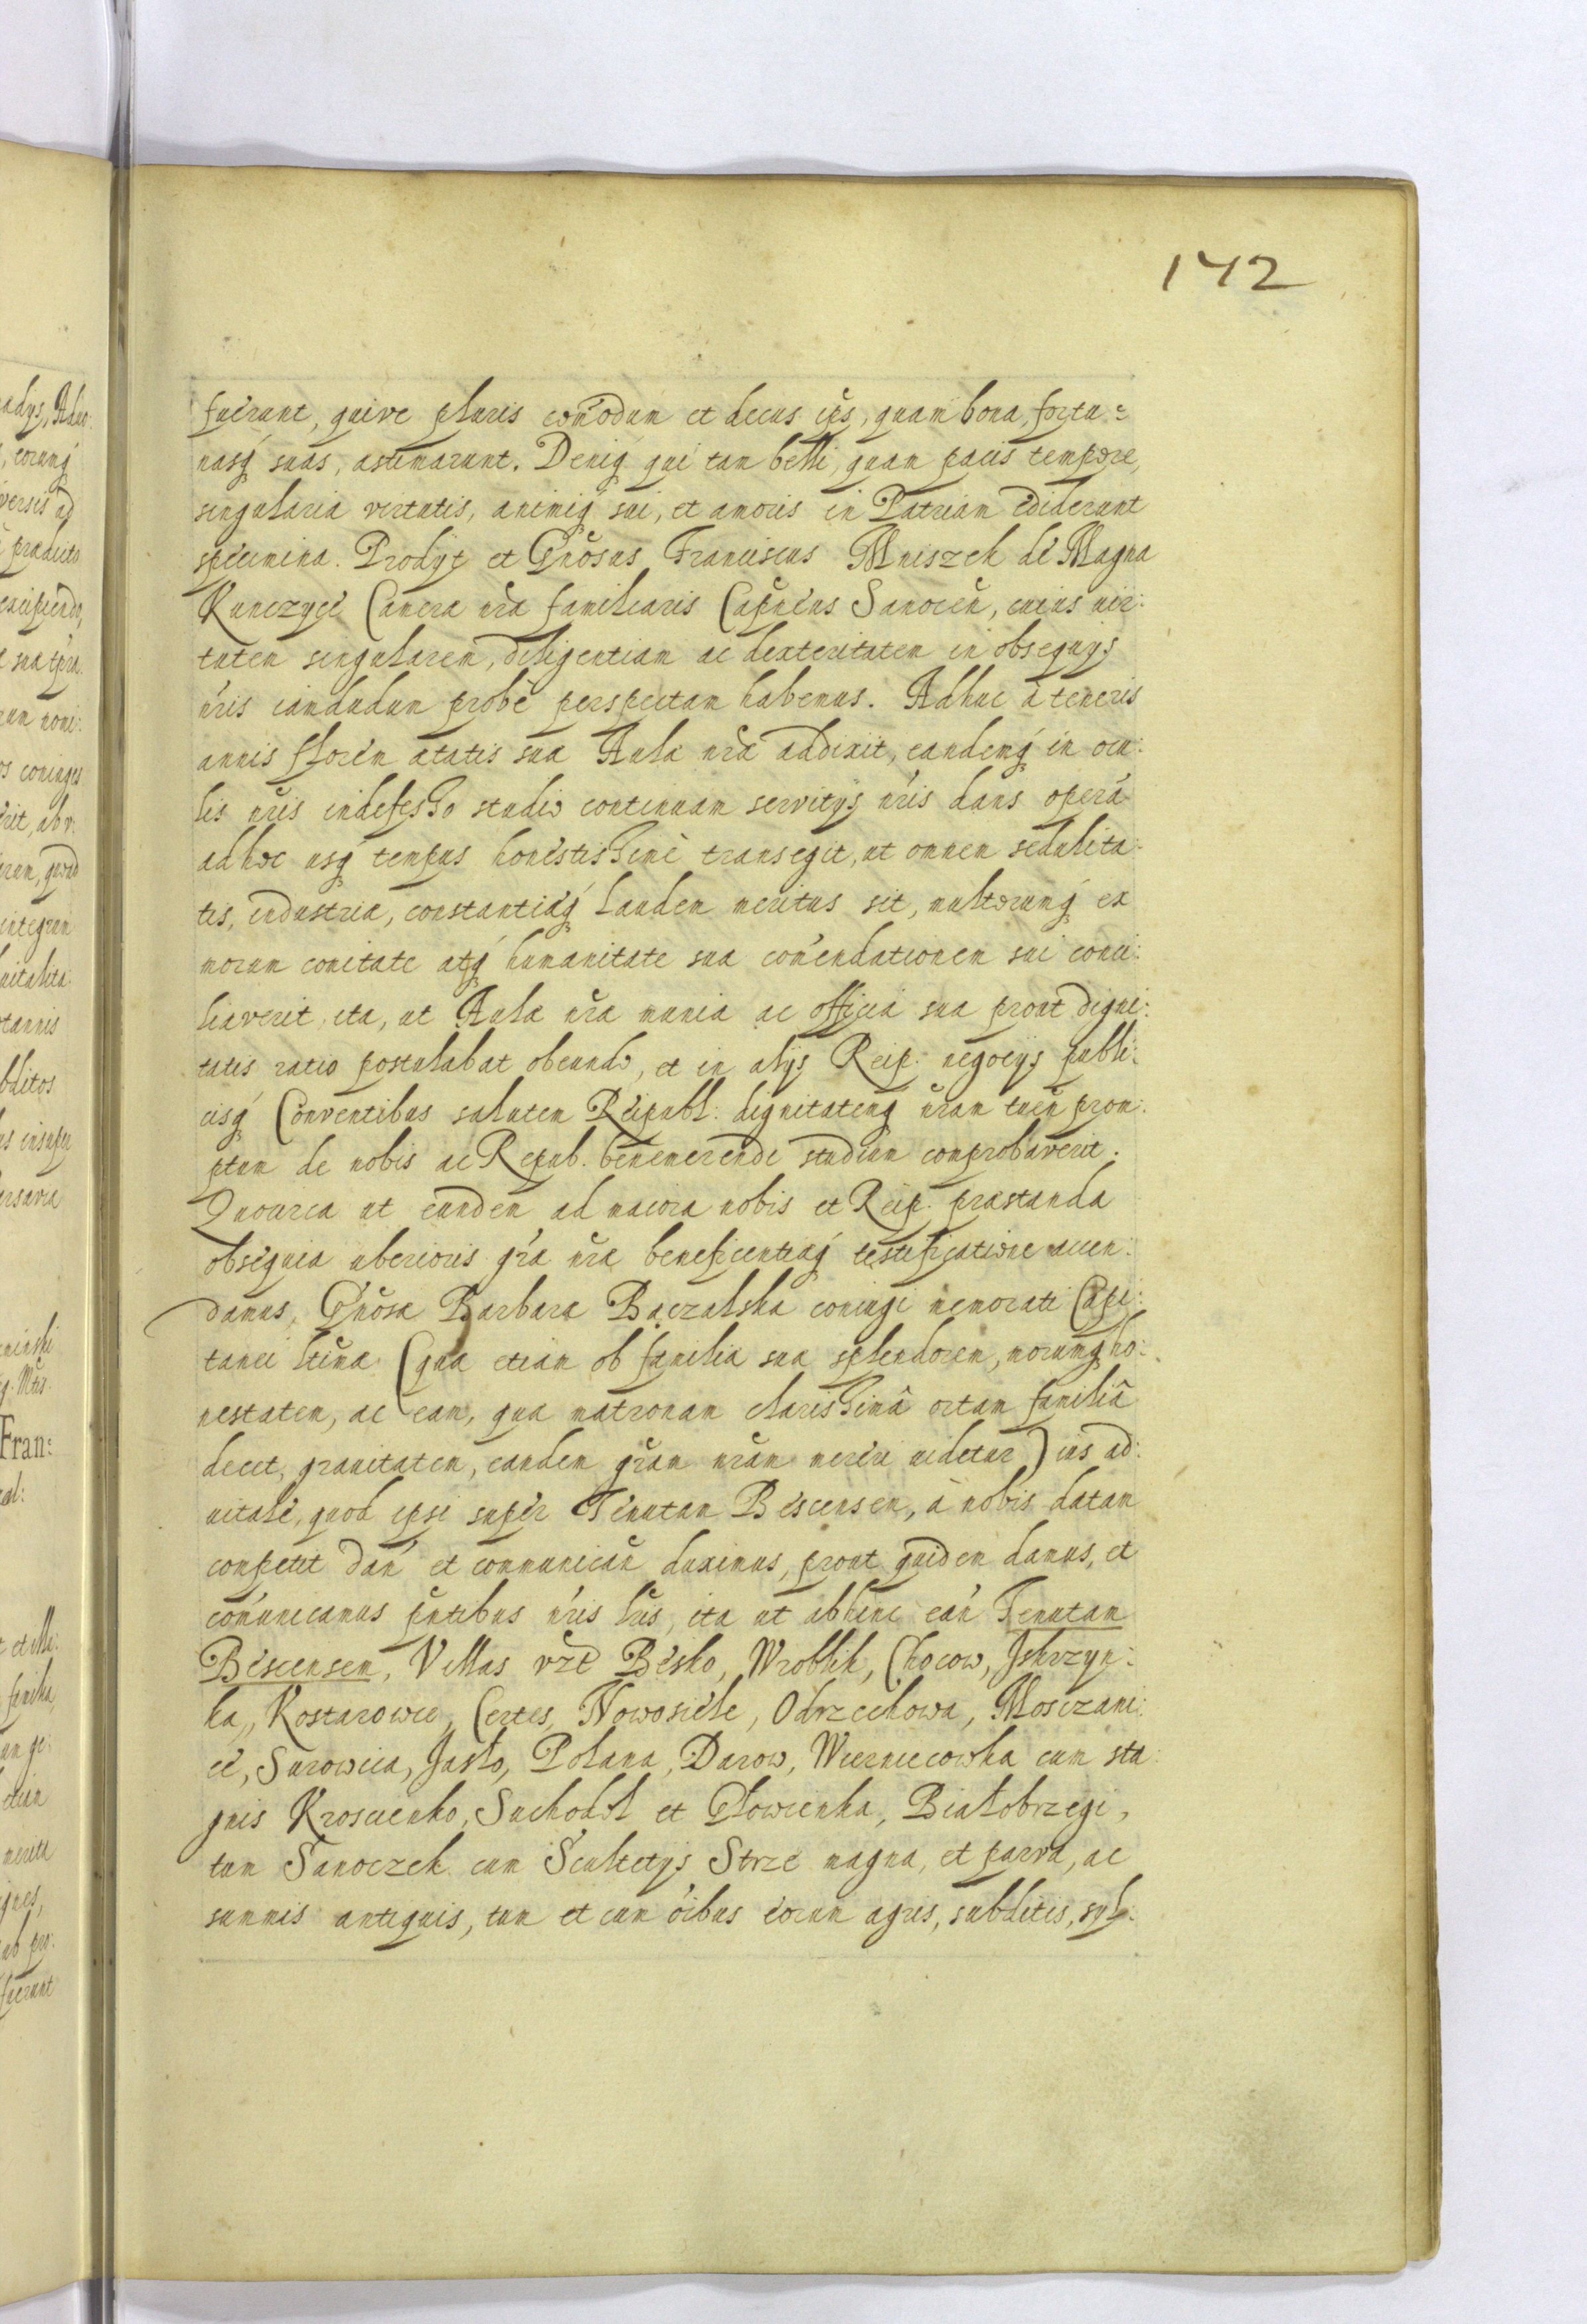 142
fuerunt, quive pluris com̃odum et decus eps, quam bona, fortu=
nasq́ suas, æstimarunt. Deniq́ qui tam belli, quam pacis tempore,
singularia virtutis, animiq́ sui, et amoris in Patriam ediderunt
specimina. Prodijt et Gn̄osus Franciscus Mniszek de Magna
Kunczyce Camera nr̄a familiaris Capn̄eus Sanocen̄, cuius vir:
tutem singularem, diligentiam ac dexteritatem in obsequijs
nr̄is iamdudum probè perspectam habemus. Adhuc à teneris
annis florem ætatis sua Aula nr̄a addixit, eandemq́ in ocu:
lis nr̄is indefesso studio continuam servitijs nr̄is dans operā
ad hoc usq́ tempus honestissimè transegit, ut omnem sedulita:
tis, industria, constantiaq́ laudem meritus sit, multorumq́ ex
morum comitate atq́ humanitate sua com̃endationem sui conci:
liaverit, ita, ut Aulæ nr̄a munia ac officia sua prout digni:
tatis ratio postulabat obeundo, et in alijs Reip. negocijs publi:
cisq́ Conventibus salutem Reipubl: dignitatemq nr̄am tuen̄ prom:
ptum de nobis ac Repub. benemerendi studium comprobaverit.
Quocirca ut eundem ad maiora nobis et Reip. præstanda
obsequia uberioris gr̄a nr̄æ beneficentiaq́ testificatione accen:
damus, Gn̄osa Barbaræ Bączalska coniugi memorati Capi:
tanei ltīma (qua etiam ob familia sua splendorem, morumq ho:
nestatem, ac eam, qua matronam clarissimâ ortam familiâ
decet, gravitatem, eandem gr̄am nr̄am mereri videtur) ius ad:
vitale, quod ipsi super Tenutam Bescensem, à nobis datam
competit dan̄ et communican̄ duximus, prout quidem damus, et
com̄unicamus pn̄tibus nr̄is lr̄is, ita ut abhinc ean̄ Tenutam
Bescensem, Villas vz̄t Besko, Wroblik, Chocow, Jskrzyn:
ka, Kostarowce, Certes, Nowosiele, Odrzechowa, Mosczani:
ce, Surowica, Jasło, Polana, Darow, Wiernicowka cum sta:
gnis Kroscienko, Suchodol et Głowienka, Białobrzegi,
tum Sanoczek cum Scultetijs Strze magna, et parva, ac
summis antiquis, tum et cum ōibus eorum agris, subditis, syl: